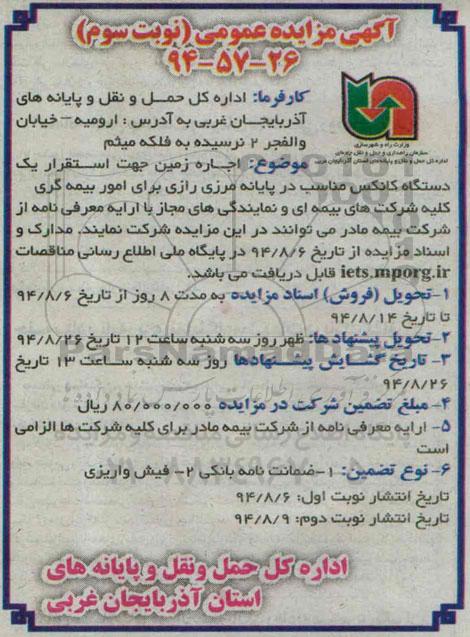 آگهی مزایده عمومی (نوبت سوم)
۹۴-۵۷-۲۶
وزارت راه و شهرسازی
سازمان راهداری و حمل و نقل جاده‌ای
اداره کل حمل و نقل و پایانه‌های استان آذربایجان غربی
کارفرما: اداره کل حمل و نقل و پایانه های
آذربایجان غربی به آدرس : ارومیه – خیابان
والفجر ۲ نرسیده به فلکه میثم
موضوع: اجاره زمین جهت استقرار یک
دستگاه کانکس مناسب در پایانه مرزی رازی برای امور بیمه گری
کلیه شرکت های بیمه ای و نمایندگی های مجاز با ارایه معرفی نامه از
شرکت بیمه مادر می توانند در این مزایده شرکت نمایند. مدارک و
اسناد مزایده از تاریخ ۹۴/۸/۶ در پایگاه ملی اطلاع رسانی مناقصات
iets.mporg.ir قابل دریافت می باشد.
۱-تحویل (فروش) اسناد مزایده به مدت ۸ روز از تاریخ ۹۴/۸/۶
تا تاریخ ۹۴/۸/۱۴
۲-تحویل پیشنهادها: ظهر روز سه شنبه ساعت ۱۲ تاریخ ۹۴/۸/۲۶
۳- تاریخ گشایش پیشنهادها روز سه شنبه ساعت ۱۳ تاریخ
۹۴/۸/۲۶
۴- مبلغ تضمین شرکت در مزایده ۸۰/۰۰۰/۰۰۰ ریال
۵- ارایه معرفی نامه از شرکت بیمه مادر برای کلیه شرکت ها الزامی
است
۶- نوع تضمین: ۱-ضمانت نامه بانکی ۲- فیش واریزی
تاریخ انتشار نوبت اول: ۹۴/۸/۶
تاریخ انتشار نوبت دوم: ۹۴/۸/۹
اداره کل حمل ونقل و پایانه های
استان آذربایجان غربی